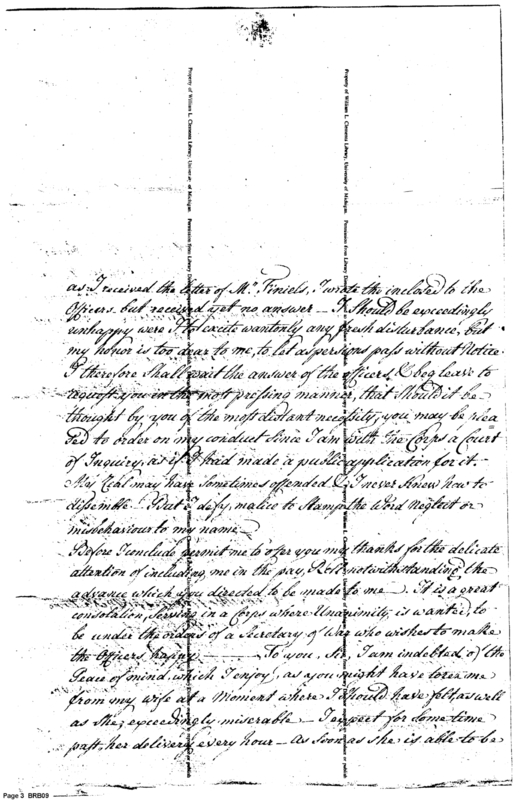 as I received the letter of Mr. Finiels, I wrote the inclosed to the
Officers but received yet no answer – I Should be exceedingly
unhappy were I to excite wantonly any fresh disturbance, but
my honor is too dear to me, to let aspersions pass without Notice
I therefore Shall wait the answer of the officers, & beg leave to
request you in the most pressing manner, that Should it be
thought by you of the most distant necessity, you may be plea
sed to order on my conduct Since I am with the Corps a Court
of Inquiry, as if I had made a public application for it. –
My Zeal may have Sometimes offended & I never Knew how to
dissemble – But I defy, malice to Stamp the Word Neglect or
misbehaviour to my name –
Before I conclude permit me to offer you my thanks for the delicate
attention of including me in the pay, Roll notwithstanding the
advance which you directed to be made to me – It is a great
consolation, Serving in a Corps where Unanimity is wanted, to
be under the orders of a Secretary of War who wishes to make
the Officers happy – To you, Sir, I am indebted of the
Peace of mind which I enjoy, as you might have torn me
from my wife at a Moment where I Should have felt as well
as She, exceedingly miserable – I expect for Some time
past, her delivery every hour – As Soon as She is able to be
Property of William L. Clements Library, University of Michigan. Permission from Library
Property of William L. Clements Library, University of Michigan. Permission from Library
Page 3 BRB09